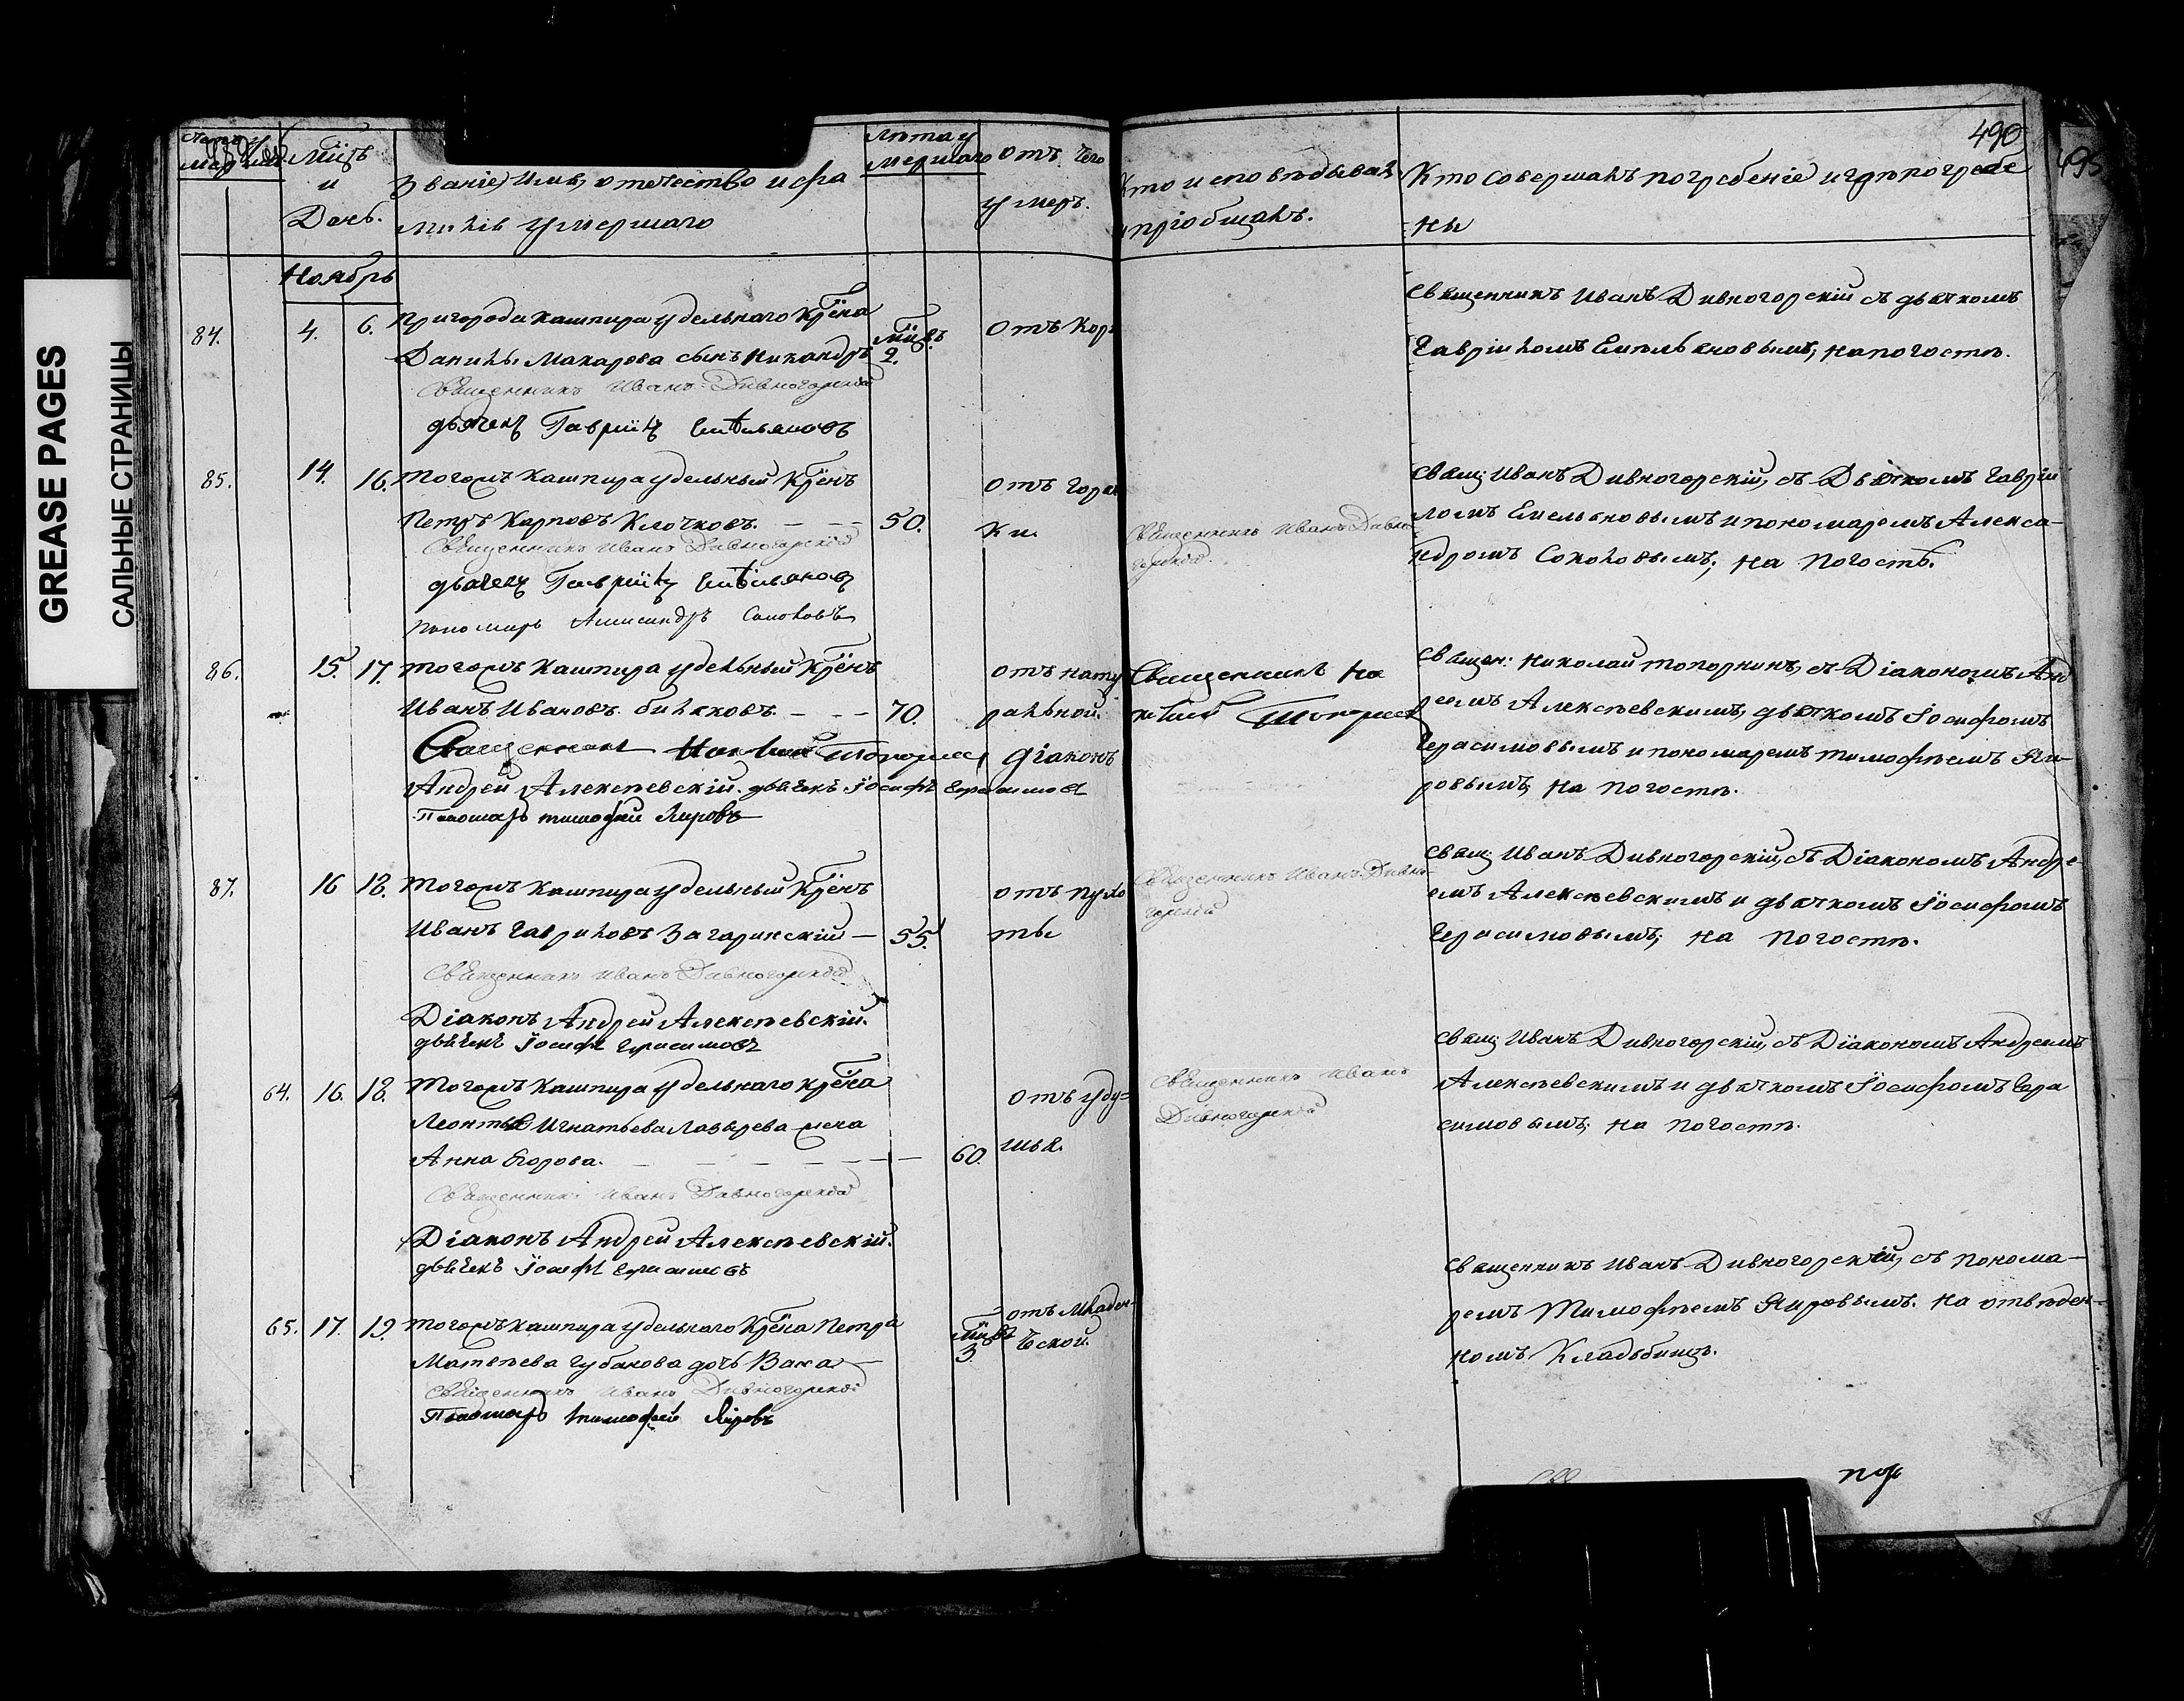 GREASE PAGES
САЛЬНЫЕ СТРАНИЦЫ
490
495
Мцъ
и
День.
Званіе, Имя, отечество и фа
милія умершаго
Лѣта у
мершаго
отъ чего
умеръ.
Кто исповѣдывалъ
и пріобщалъ.
Кто совершалъ погребеніе и гдѣ погребе
ны
Ноябрь
84. 4. 6. Пригорода Кашпира удельнаго Крѣна
Данилы Макарова сынъ Никандръ
мцвъ
2.
Отъ Кори
Священникъ Иванъ Дивногорскій
дьячекъ Гавріилъ Емельяновъ
Священникъ Иванъ Дивногорскій съ дьячкомъ
Гавріиломъ Емельяновымъ; на погостѣ.
85. 14. 16. Тогожъ Кашпира удельный Крѣнъ
Петръ Карповъ Клочковъ. — — — 50.
отъ горяч
ки.
Священникъ Иванъ Дивногорскій
дьячекъ Гавріилъ Емельяновъ
Пономарь Александръ Соколовъ
Священникъ Иванъ Дивно-
горскій.
Свящ: Иванъ Дивногорскій, съ Дьячкомъ Гавріи
ломъ Емельяновымъ и пономаремъ Алекса-
ндромъ Соколовымъ; на Погостѣ.
86. 15. 17. Тогожъ Кашпира удельный Крѣнъ
Иванъ Ивановъ — — — 70.
отъ нату
ральной.
Священникъ Николай Топорнинъ Діаконъ
Андрей Алексѣевскій. дьячекъ Іосифъ Герасимовъ
Пономарь Тимофей Яировъ
Священникъ Ни
колай
Священ: Николай Топорнинъ, съ Діакономъ Анд
реемъ Алексѣевскимъ, дьячкомъ Іосифомъ
Герасимовымъ и пономаремъ Тимофѣемъ Яи-
ровымъ, на Погостѣ.
87. 16 18. Тогожъ Кашпира удельный Крѣнъ
Иванъ Гавриловъ Загаринскій — 55.
отъ пухо
ты
Священникъ Иванъ Дивногорскій
Діаконъ Андрей Алексѣевскій.
дьячекъ Іосифъ Герасимовъ
Священникъ Иванъ Дивно-
горскій
Свящ: Иванъ Дивногорскій, съ Діакономъ Андре-
емъ Алексѣевскимъ и дьячкомъ Іосифомъ
Герасимовымъ; на Погостѣ.
64. 16. 18. Тогожъ Кашпира удельнаго крѣна
Леонтья Игнатьева Лазырева жена
Анна Егорова. — — — — — 60.
отъ уду=
шья.
Священникъ Иванъ Дивногорскій
Діаконъ Андрей Алексѣевскій.
дьячекъ Іосифъ Герасимовъ
Священникъ Иванъ
Дивногорскій
Свящ: Иванъ Дивногорскій, съ Діакономъ Андреемъ
Алексѣевскимъ и дьячкомъ Іосифомъ Гера
симовымъ; на погостѣ.
65. 17. 19. Тогожъ кашпира удельнаго Крѣна Петра
Матвѣева Губанова дочь
мцвъ
3.
отъ Младен-
ческой.
Священникъ Иванъ Дивногорскій
Пономарь Тимофей Яировъ
Священникъ Иванъ Дивногорскій, съ понома-
ремъ Тимофѣемъ Яировымъ. на отвѣден-
номъ Кладбищѣ.